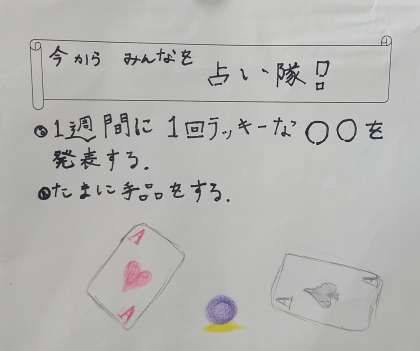 今から みんなを
占い隊!!
●1週間に1回ラッキーな○○を
発表する.
●たまに手品をする.
A
A
A
A